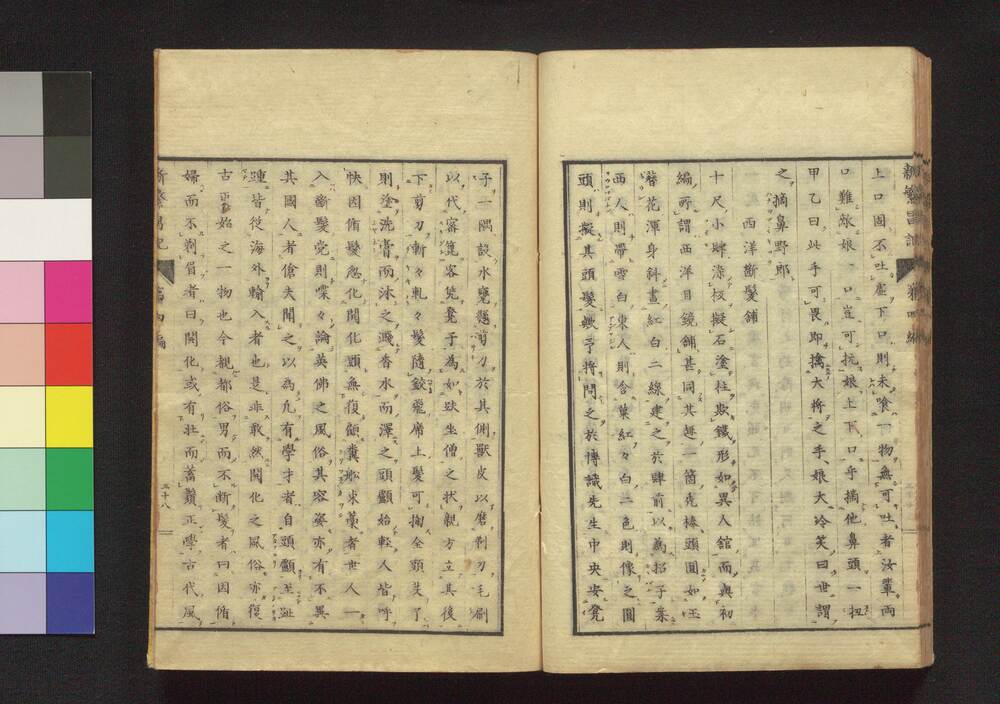 上口固不吐虛下口則未喰一物無可吐者汝輩両
口難敵娘一口豈可抗娘上下口乎摘他鼻頭一扭
甲乙曰此手可畏即擒大将之手娘大冷笑曰世謂
之摘鼻野郎
西洋斷髮舖
十尺小肆漆板擬石塗柱欺鐵形如異人舘而與初
編所謂西洋目鏡舖甚同其趣一箇克棒頭圓如玉
花渾身斜畫紅白二線建之於肆前以為招子朱
西人則帶雪白東人則含葉紅々白二色則像之圓
頭則擬其頭髮歟予将問之於博識先生中央安凳
子一隅設水甕懸剪刀於其側獸皮以磨剃刀毛刷
以代客凭凳子為如趺坐僧之状親方立其後
下剪刀斬々軋々髮隨鉸飛席上髮可掬全頸芟了
則塗洗膏而沐之濺香水而澤之頭顱始軽人皆呼
快因脩髮忽化開化頭無復顧糞船束藁者世人一
入斷髮党則喋々論英佛之風俗其容姿亦有不異
其國人者傖夫聞之以為凢有學才者自頭顱至趾
踵皆從海外輸入者也是非敢然開化之風俗亦復
古更始之一物也今観都俗男而不斷髮者曰因循
婦而不剃眉者曰開化或有壮而蓄鬚正學古代風
三十八